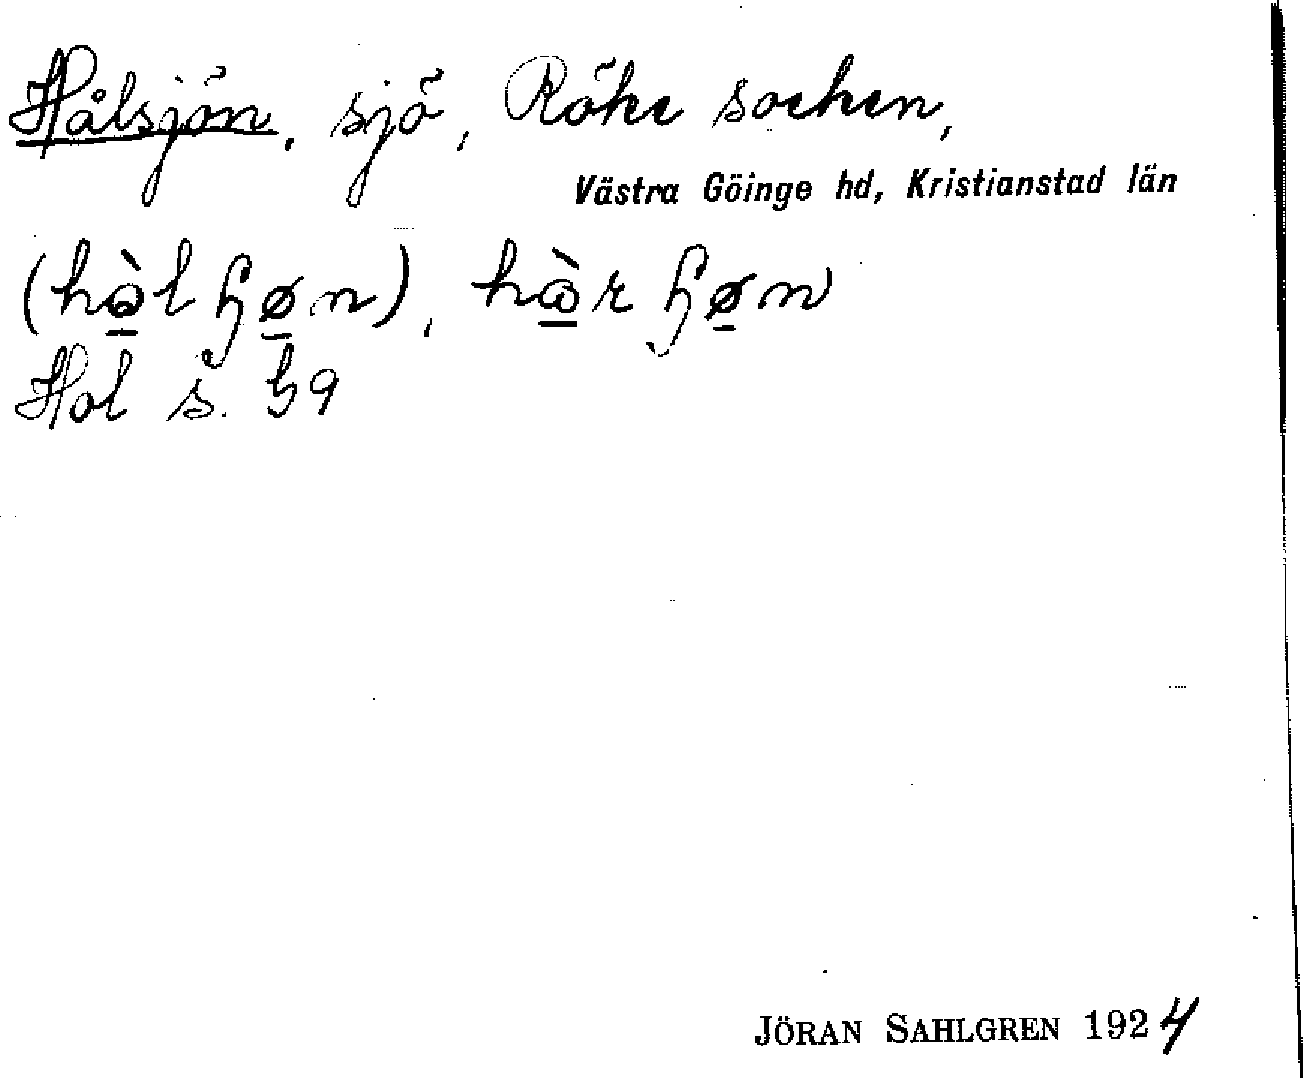 Hålsjön, sjö, Röke socken,
Västra Göinge hd, Kristianstad län
Hol s. 59
JÖRAN SAHLGREN 1924